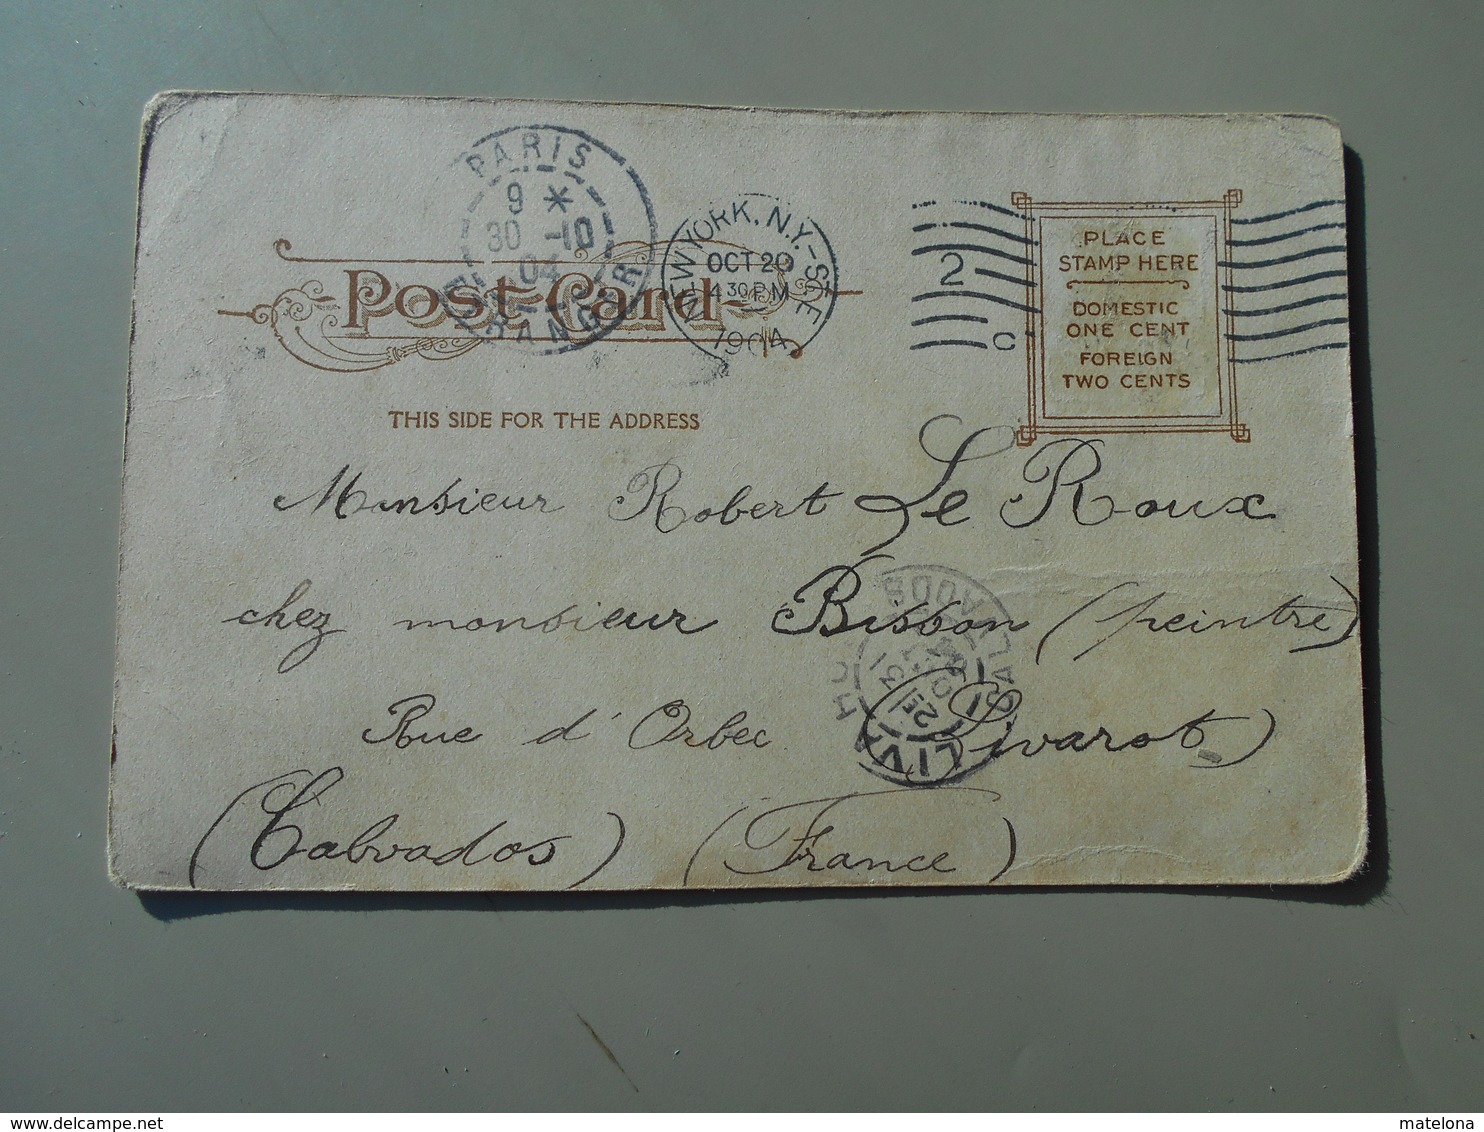 PARIS
9 *
30 -10
04
ETRANGER
NEW YORK, N.Y.-STA. E
OCT 20
4 30 PM
1904
2
C
PLACE
STAMP HERE
DOMESTIC
ONE CENT
FOREIGN
TWO CENTS
Post Card
THIS SIDE FOR THE ADDRESS
Monsieur Robert Le Roux
chez monsieur Bisson (peintre)
Rue d'Orbec Livarot
(Calvados) (France)
LIVAROT
CALVADOS
www.delcampe.net
matelona